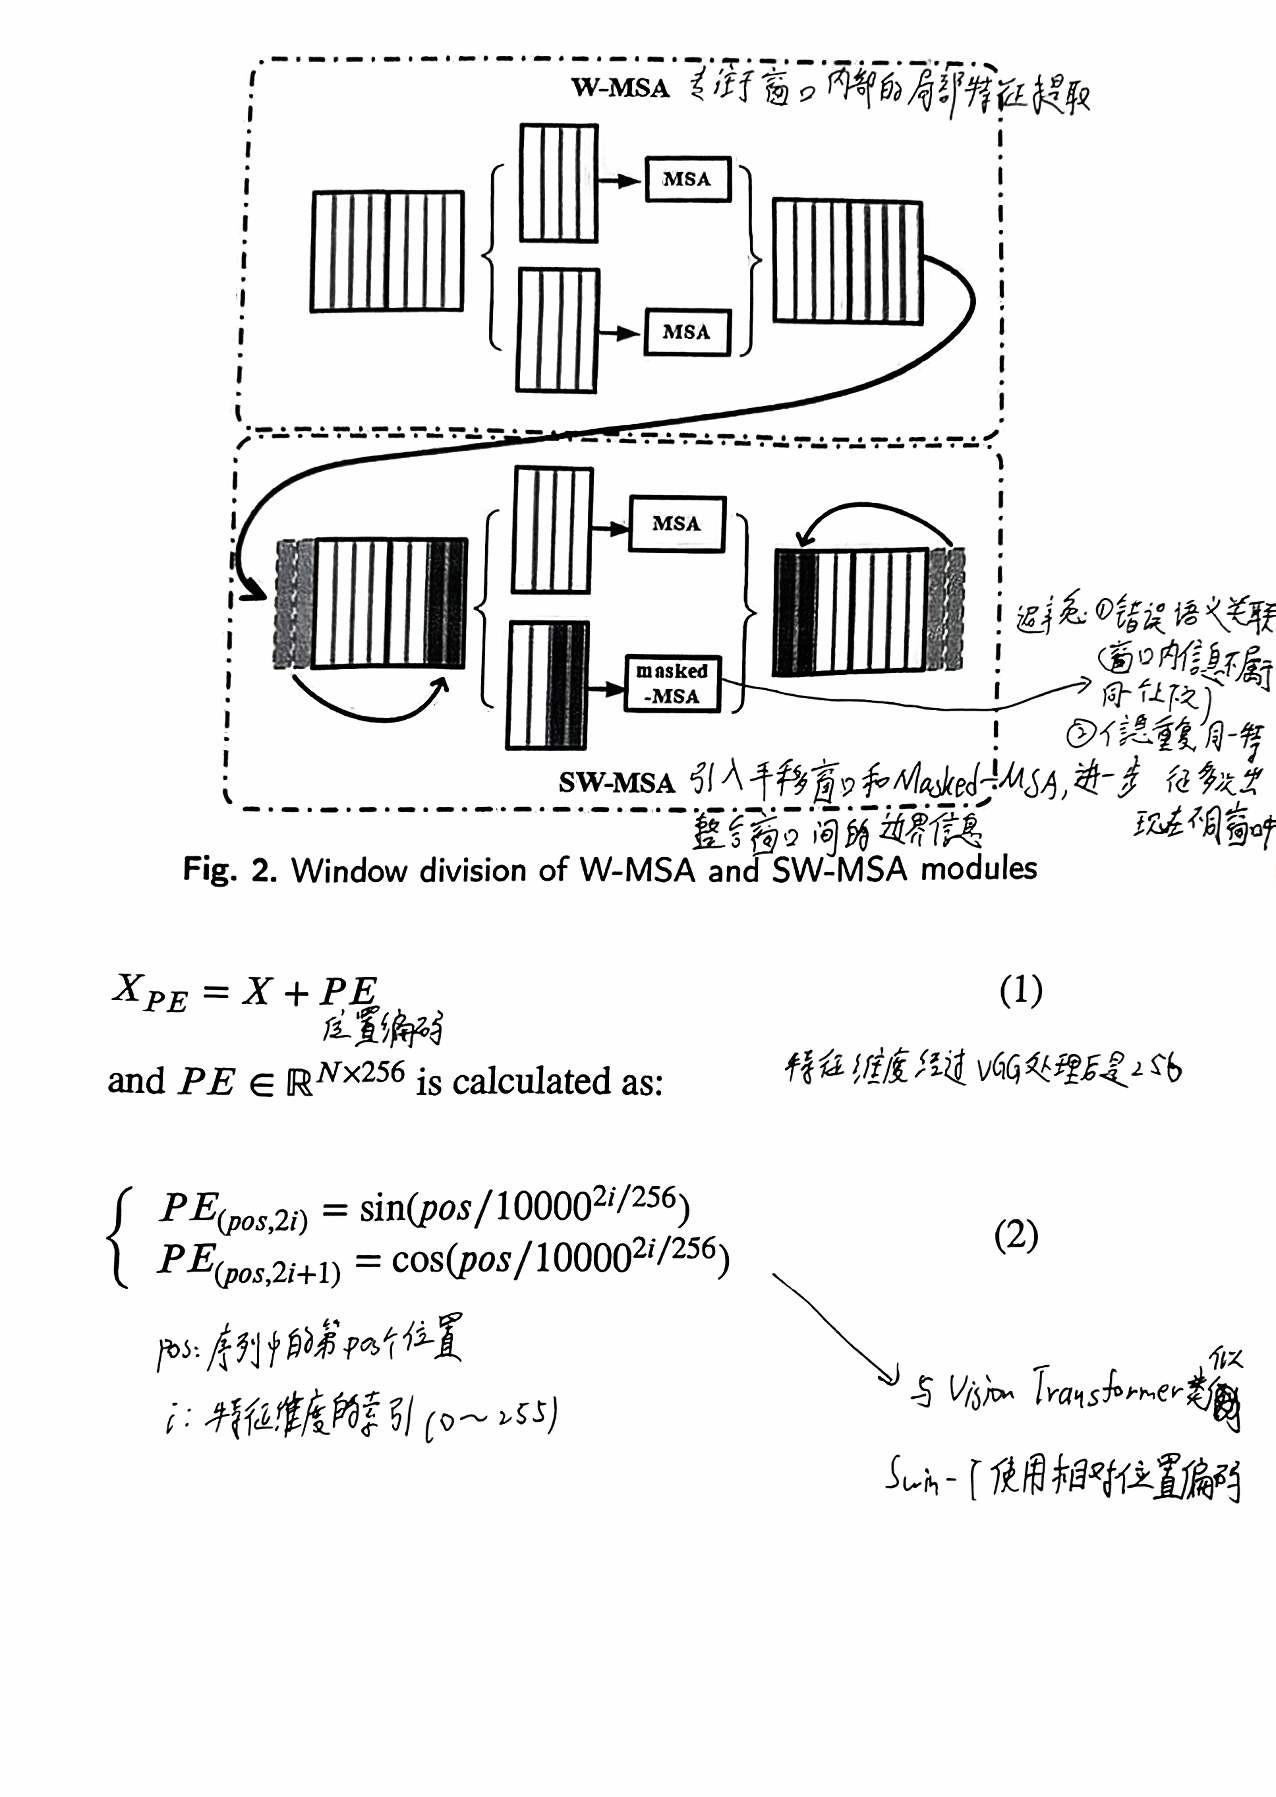 W-MSA 专注于窗口内部的局部特征提取
MSA
MSA
MSA
masked
-MSA
避免:①错误语义关联
(窗口内信息不属于
同一个上下文)
②信息重复 同一特
征多次出
现在不同窗口中
SW-MSA 引入平移窗口和Masked-MSA,进一步
整合窗口间的边界信息
Fig. 2. Window division of W-MSA and SW-MSA modules
X_{PE} = X + PE (1)
位置编码
and PE ∈ ℝ^{N×256} is calculated as: 特征维度经过VGG处理后是256
PE_{(pos,2i)} = sin(pos/10000^{2i/256})
(2)
PE_{(pos,2i+1)} = cos(pos/10000^{2i/256})
pos: 序列中的第pos个位置
i: 特征维度的索引(0~255)
与Vision Transformer类似
Swin-T 使用相对位置偏码